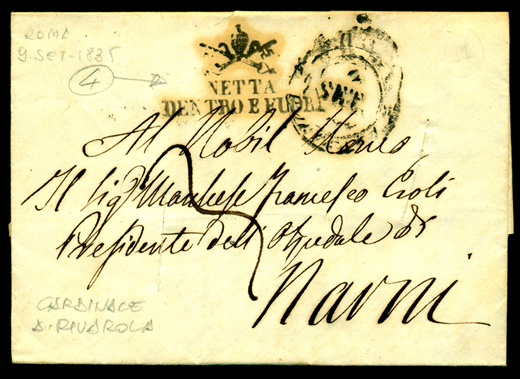 ROMA
9-SET-1835
4
NETTA
DENTRO E FUORI
SET
Al Nobil Uomo
Il Sigr Marchese Francesco Eroli
Presidente dell'Ospedale di
Narni
CARDINALE
A. RIVAROLA